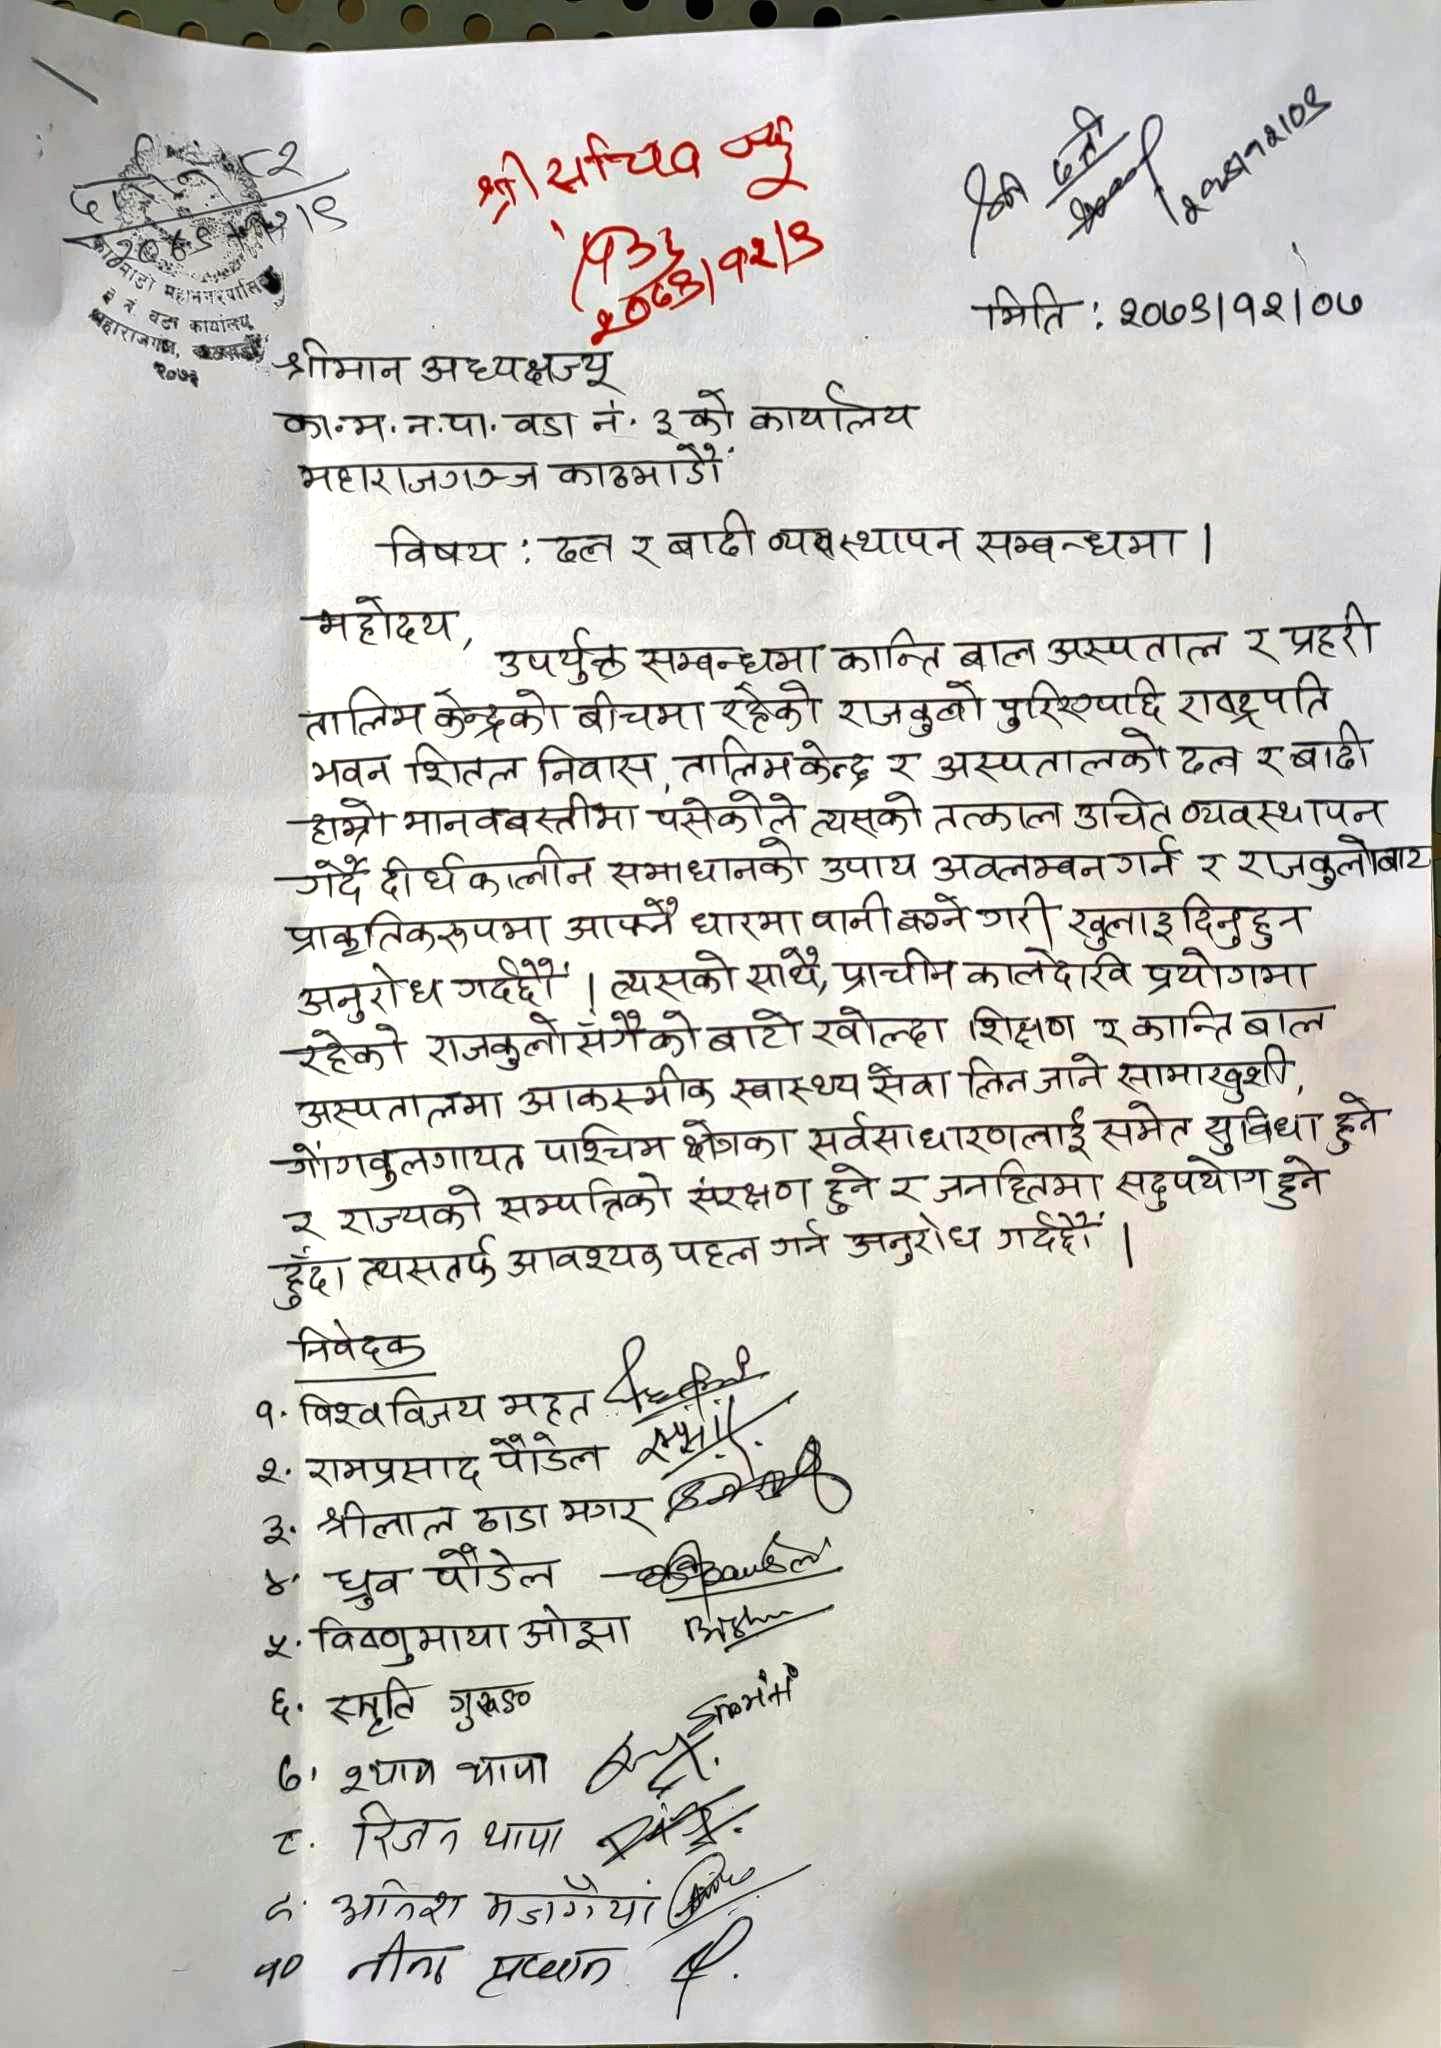 श्री सचिव ज्यू
२०७९।१२।९
काठमाडौं महानगरपालिका
३ नं. वडा कार्यालय
महाराजगञ्ज,
मिति : २०७९।१२।०७
श्रीमान अध्यक्षज्यू
का.म.न.पा. वडा नं. ३ को कार्यालय
महाराजगञ्ज काठमाडौं
विषय : ढल र बाढी व्यवस्थापन सम्बन्धमा ।
महोदय,
उपर्युक्त सम्बन्धमा कान्ति बाल अस्पताल र प्रहरी
तालिम केन्द्रको बीचमा रहेको राजकुलो पुरिएपछि राष्ट्रपति
भवन शितल निवास, तालिम केन्द्र र अस्पतालको ढल र बाढी
हाम्रो मानवबस्तीमा पसेकोले त्यसको तत्काल उचित व्यवस्थापन
गर्दै दीर्घकालीन समाधानको उपाय अवलम्बन गर्न र राजकुलोबाट
प्राकृतिकरूपमा आफ्नै धारमा पानी बग्ने गरी खुलाइदिनुहुन
अनुरोध गर्दछौं । त्यसको साथै, प्राचीन कालदेखि प्रयोगमा
रहेको राजकुलोसँगैको बाटो खोल्दा शिक्षण र कान्ति बाल
अस्पतालमा आकस्मीक स्वास्थ्य सेवा लिन जाने सामाखुशी,
गोंगबुलगायत पाश्चिम क्षेत्रका सर्वसाधारणलाई समेत सुविधा हुने
र राज्यको सम्पत्तिको संरक्षण हुने र जनहितमा सदुपयोग हुने
हुँदा त्यसतर्फ आवश्यक पहल गर्न अनुरोध गर्दछौं ।
निवेदक
१. विश्वविजय महत
२. रामप्रसाद पौडेल
३. श्रीलाल ढाडा मगर
४. ध्रुव पौडेल
५. विष्णुमाया ओझा
६. स्मृति गुरुङ
७. श्याम थापा
८. रिजन थापा
९. अनिश मजगैयां
१० नीना प्रधान